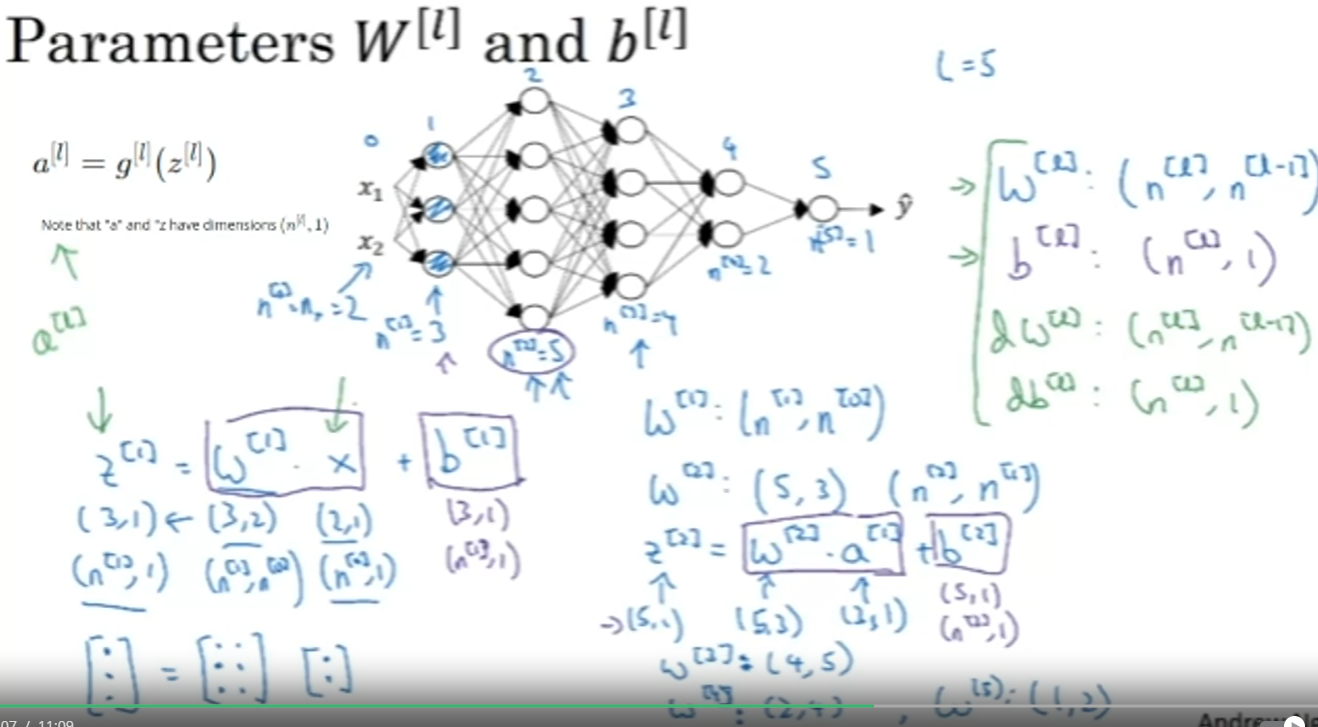 Parameters W^[l] and b^[l]
L = 5
a^[l] = g^[l](z^[l])
Note that "a" and "z have dimensions (n^[l], 1)
a^[l]
0
1
2
3
4
5
x₁
x₂
ŷ
n^[0] = nₓ = 2
n^[1] = 3
n^[2] = 5
n^[3] = 4
n^[4] = 2
n^[5] = 1
→ W^[l] : (n^[l], n^[l-1])
→ b^[l] : (n^[l], 1)
dW^[l] : (n^[l], n^[l-1])
db^[l] : (n^[l], 1)
z^[1] = W^[1] · x + b^[1]
(3,1) ← (3,2) (2,1) (3,1)
(n^[1], 1) (n^[1], n^[0]) (n^[0], 1) (n^[1], 1)
[⋮] = [: : :] [:]
W^[1] : (n^[1], n^[0])
W^[2] : (5, 3) (n^[2], n^[1])
z^[2] = W^[2] · a^[1] + b^[2]
→ (5,1) (5,3) (3,1) (5,1)
(n^[2], 1)
W^[3] : (4, 5)
W^[4] : (2, 4) , W^[5] : (1, 2)
07 / 11:09